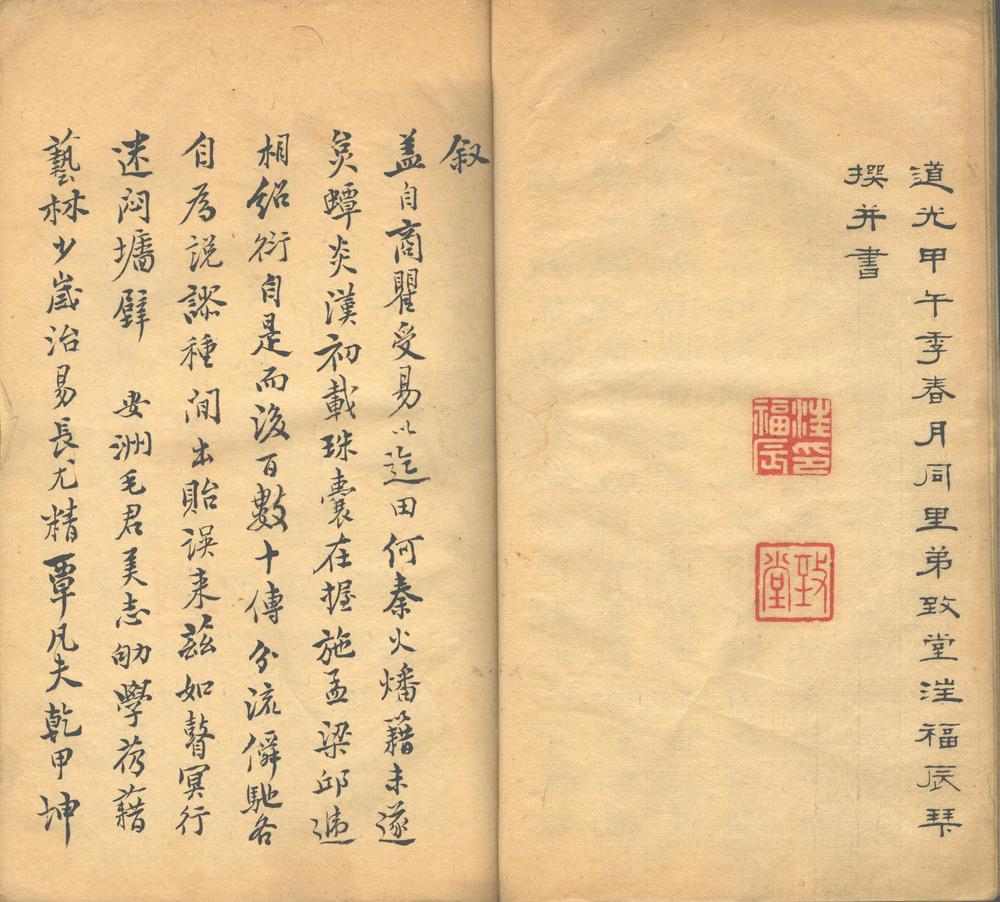 道光甲午季春月同里弟致堂汪福辰琹
撰并書
汪福辰印
致堂
叙
盖自商瞿受易以迄田何秦火燔籍未遂
炱蟫炎漢初載珠囊在握施孟梁邱遞
相紹衍自是而後百數十傳分流僻馳各
自為説謬種間出貽誤来茲如瞽冥行
迷悶墻壁 安洲毛君美志劬學荐藉
藝林少歲治易長尤精覃凡夫乾甲坤